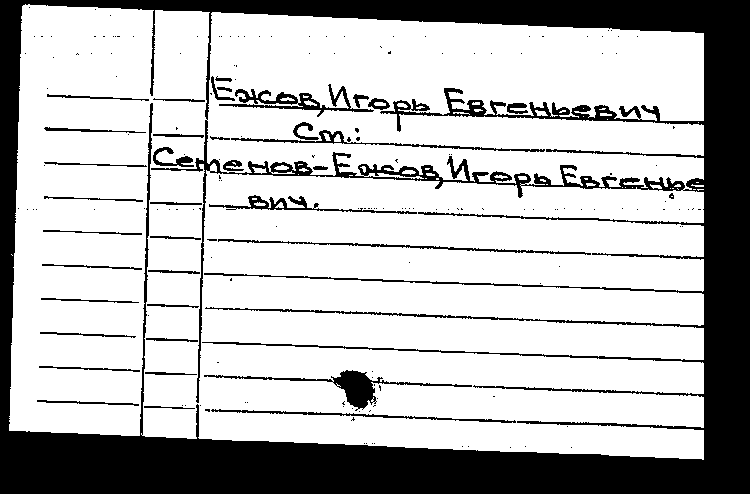 Ежов, Игорь Евгеньевич
Ст.:
Семенов-Ежов, Игорь Евгенье
вич.